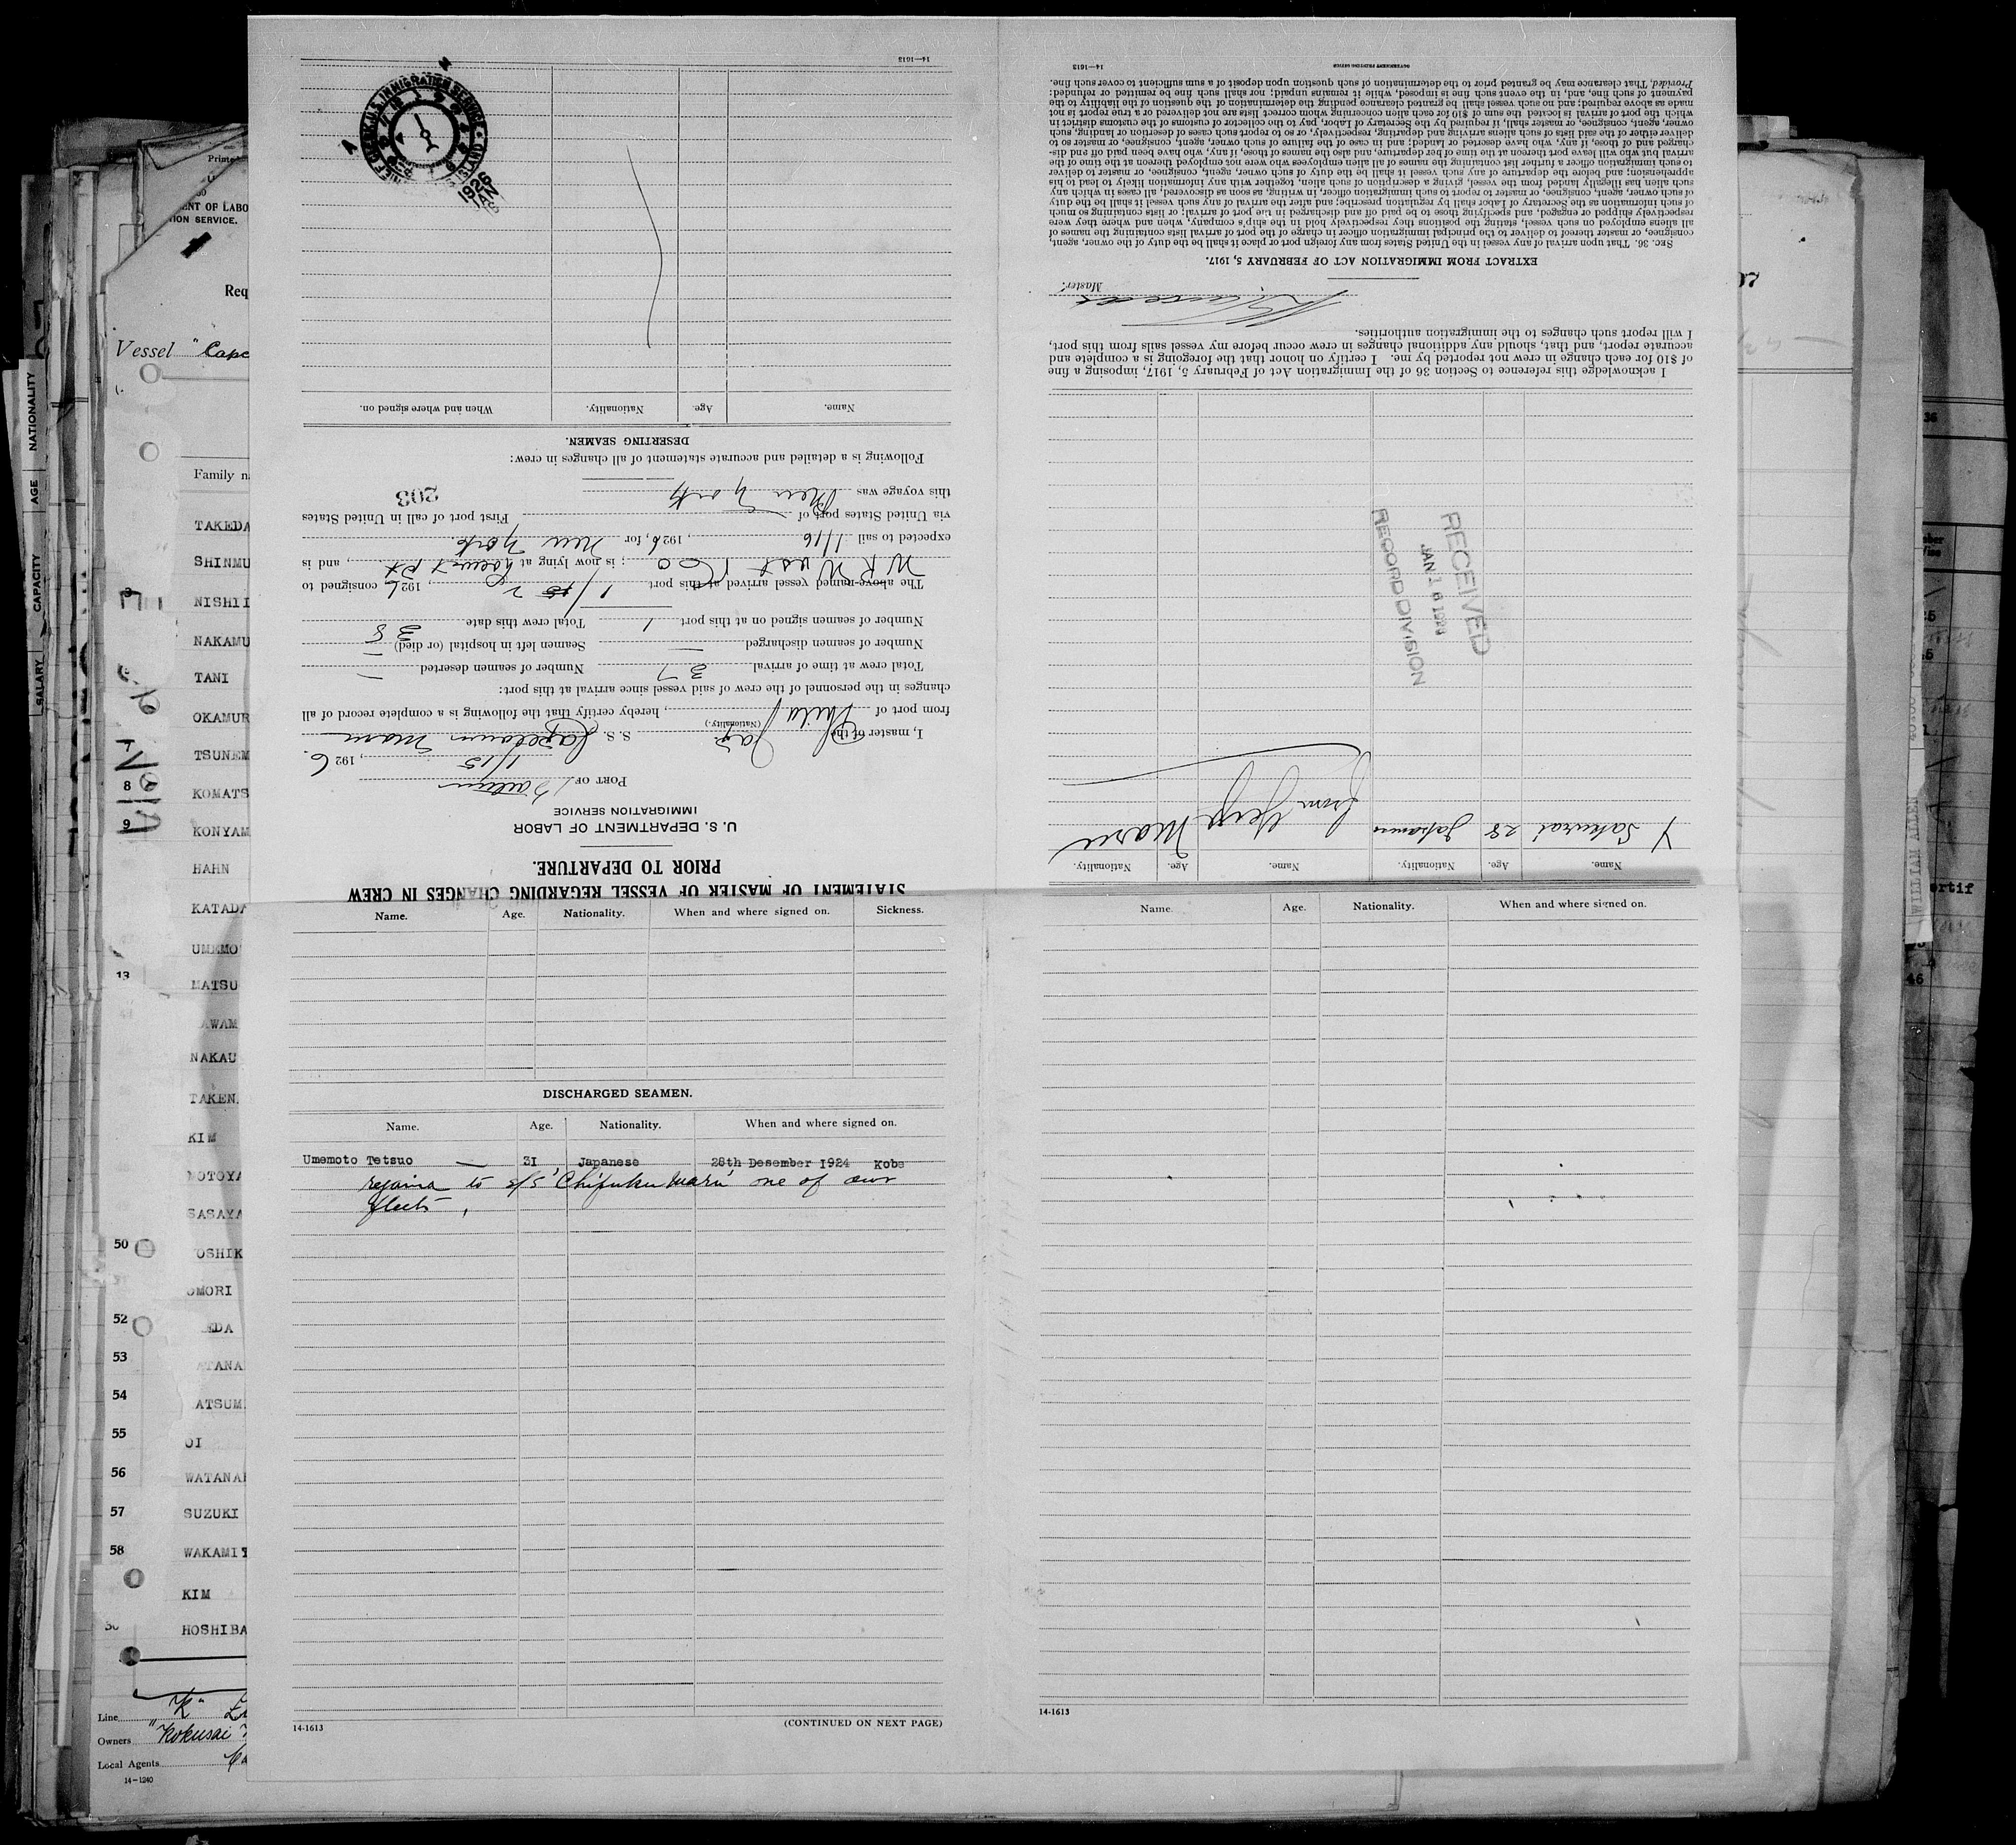 STATEMENT OF MASTER OF VESSEL REGARDING CHANGES IN CREW
PRIOR TO DEPARTURE.
U. S. DEPARTMENT OF LABOR
IMMIGRATION SERVICE
PORT OF
1/15, 1926.
I, master of the Jap. S. S. Capetown Maru
(Nationality.)
from port of Phila, hereby certify that the following is a complete record of all
changes in the personnel of the crew of said vessel since arrival at this port:
Total crew at time of arrival 37 Number of seamen deserted —
Number of seamen discharged — Seamen left in hospital (or died) —
Number of seamen signed on at this port 1 Total crew this date 38
The above-named vessel arrived at this port 1/ , 1926 consigned to
; is now lying at Locust Pt, and is
expected to sail 1/16, 1926, for New York
via United States port of First port of call in United States
this voyage was New York
203
Following is a detailed and accurate statement of all changes in crew:
DESERTING SEAMEN.
Name. Age. Nationality. When and where signed on.
1926
JAN
14—1613
Name. Age. Nationality. Name. Age. Nationality.
Y Sakurai 28 Japanese from Maru
RECEIVED
JAN 1 8 1926
RECORD DIVISION
I acknowledge this reference to Section 36 of the Immigration Act of February 5, 1917, imposing a fine
of $10 for each change in crew not reported by me. I certify on honor that the foregoing is a complete and
accurate report, and that, should any additional changes in crew occur before my vessel sails from this port,
I will report such changes to the immigration authorities.
Master.
EXTRACT FROM IMMIGRATION ACT OF FEBRUARY 5, 1917.
SEC. 36. That upon arrival of any vessel in the United States from any foreign port or place it shall be the duty of the owner, agent,
consignee, or master thereof to deliver to the principal immigration officer in charge of the port of arrival lists containing the names of
all aliens employed on such vessel, stating the positions they respectively hold in the ship's company, when and where they were
respectively shipped or engaged, and specifying those to be paid off and discharged in the port of arrival; or lists containing so much
of such information as the Secretary of Labor shall by regulation prescribe; and after the arrival of any such vessel it shall be the duty
of such owner, agent, consignee, or master to report to such immigration officer, in writing, as soon as discovered, all cases in which any
such alien has illegally landed from the vessel, giving a description of such alien, together with any information likely to lead to his
apprehension; and before the departure of any such vessel it shall be the duty of such owner, agent, consignee, or master to deliver
to such immigration officer a further list containing the names of all alien employees who were not employed thereon at the time of the
arrival but who will leave port thereon at the time of her departure, and also the names of those, if any, who have been paid off and dis-
charged and of those, if any, who have deserted or landed; and in case of the failure of such owner, agent, consignee, or master so to
deliver either of the said lists of such aliens arriving and departing, respectively, or so to report such cases of desertion or landing, such
owner, agent, consignee, or master shall, if required by the Secretary of Labor, pay to the collector of customs of the customs district in
which the port of arrival is located the sum of $10 for each alien concerning whom correct lists are not delivered or a true report is not
made as above required; and no such vessel shall be granted clearance pending the determination of the question of the liability to the
payment of such fine, and, in the event such fine is imposed, while it remains unpaid; nor shall such fine be remitted or refunded:
Provided, That clearance may be granted prior to the determination of such question upon deposit of a sum sufficient to cover such fine.
14—1613
GOVERNMENT PRINTING OFFICE
Name. Age. Nationality. When and where signed on. Sickness.
DISCHARGED SEAMEN.
Name. Age. Nationality. When and where signed on.
Umemoto Tetsuo — 31 Japanese 28th Desember 1924 Kobe
rejoin to s/s "Chifuku Maru" one of our
fleets.
14-1613
(CONTINUED ON NEXT PAGE)
Name. Age. Nationality. When and where signed on.
14-1613
Req
Vessel "Cape
Family n
TAKEDA
SHINMU
NISHII
NAKAMU
TANI
OKAMUR
TSUNEM
8 KOMATS
9 KONYAM
HAHN
KATADA
UMEMO
13 MATSU
AWAM
NAKAU
TAKEN
KIM
MOTOYA
SASAYA
50 OSHIK
OMORI
52 EDA
53 ATANA
54 ATSUM
55 OI
56 WATANAB
57 SUZUKI
58 WAKAMIY
KIM
HOSHIBA
Line "K" Li
Owners "Kokusai
Local Agents
14-1240
NATIONALITY
AGE
CAPACITY
SALARY
ertif
46